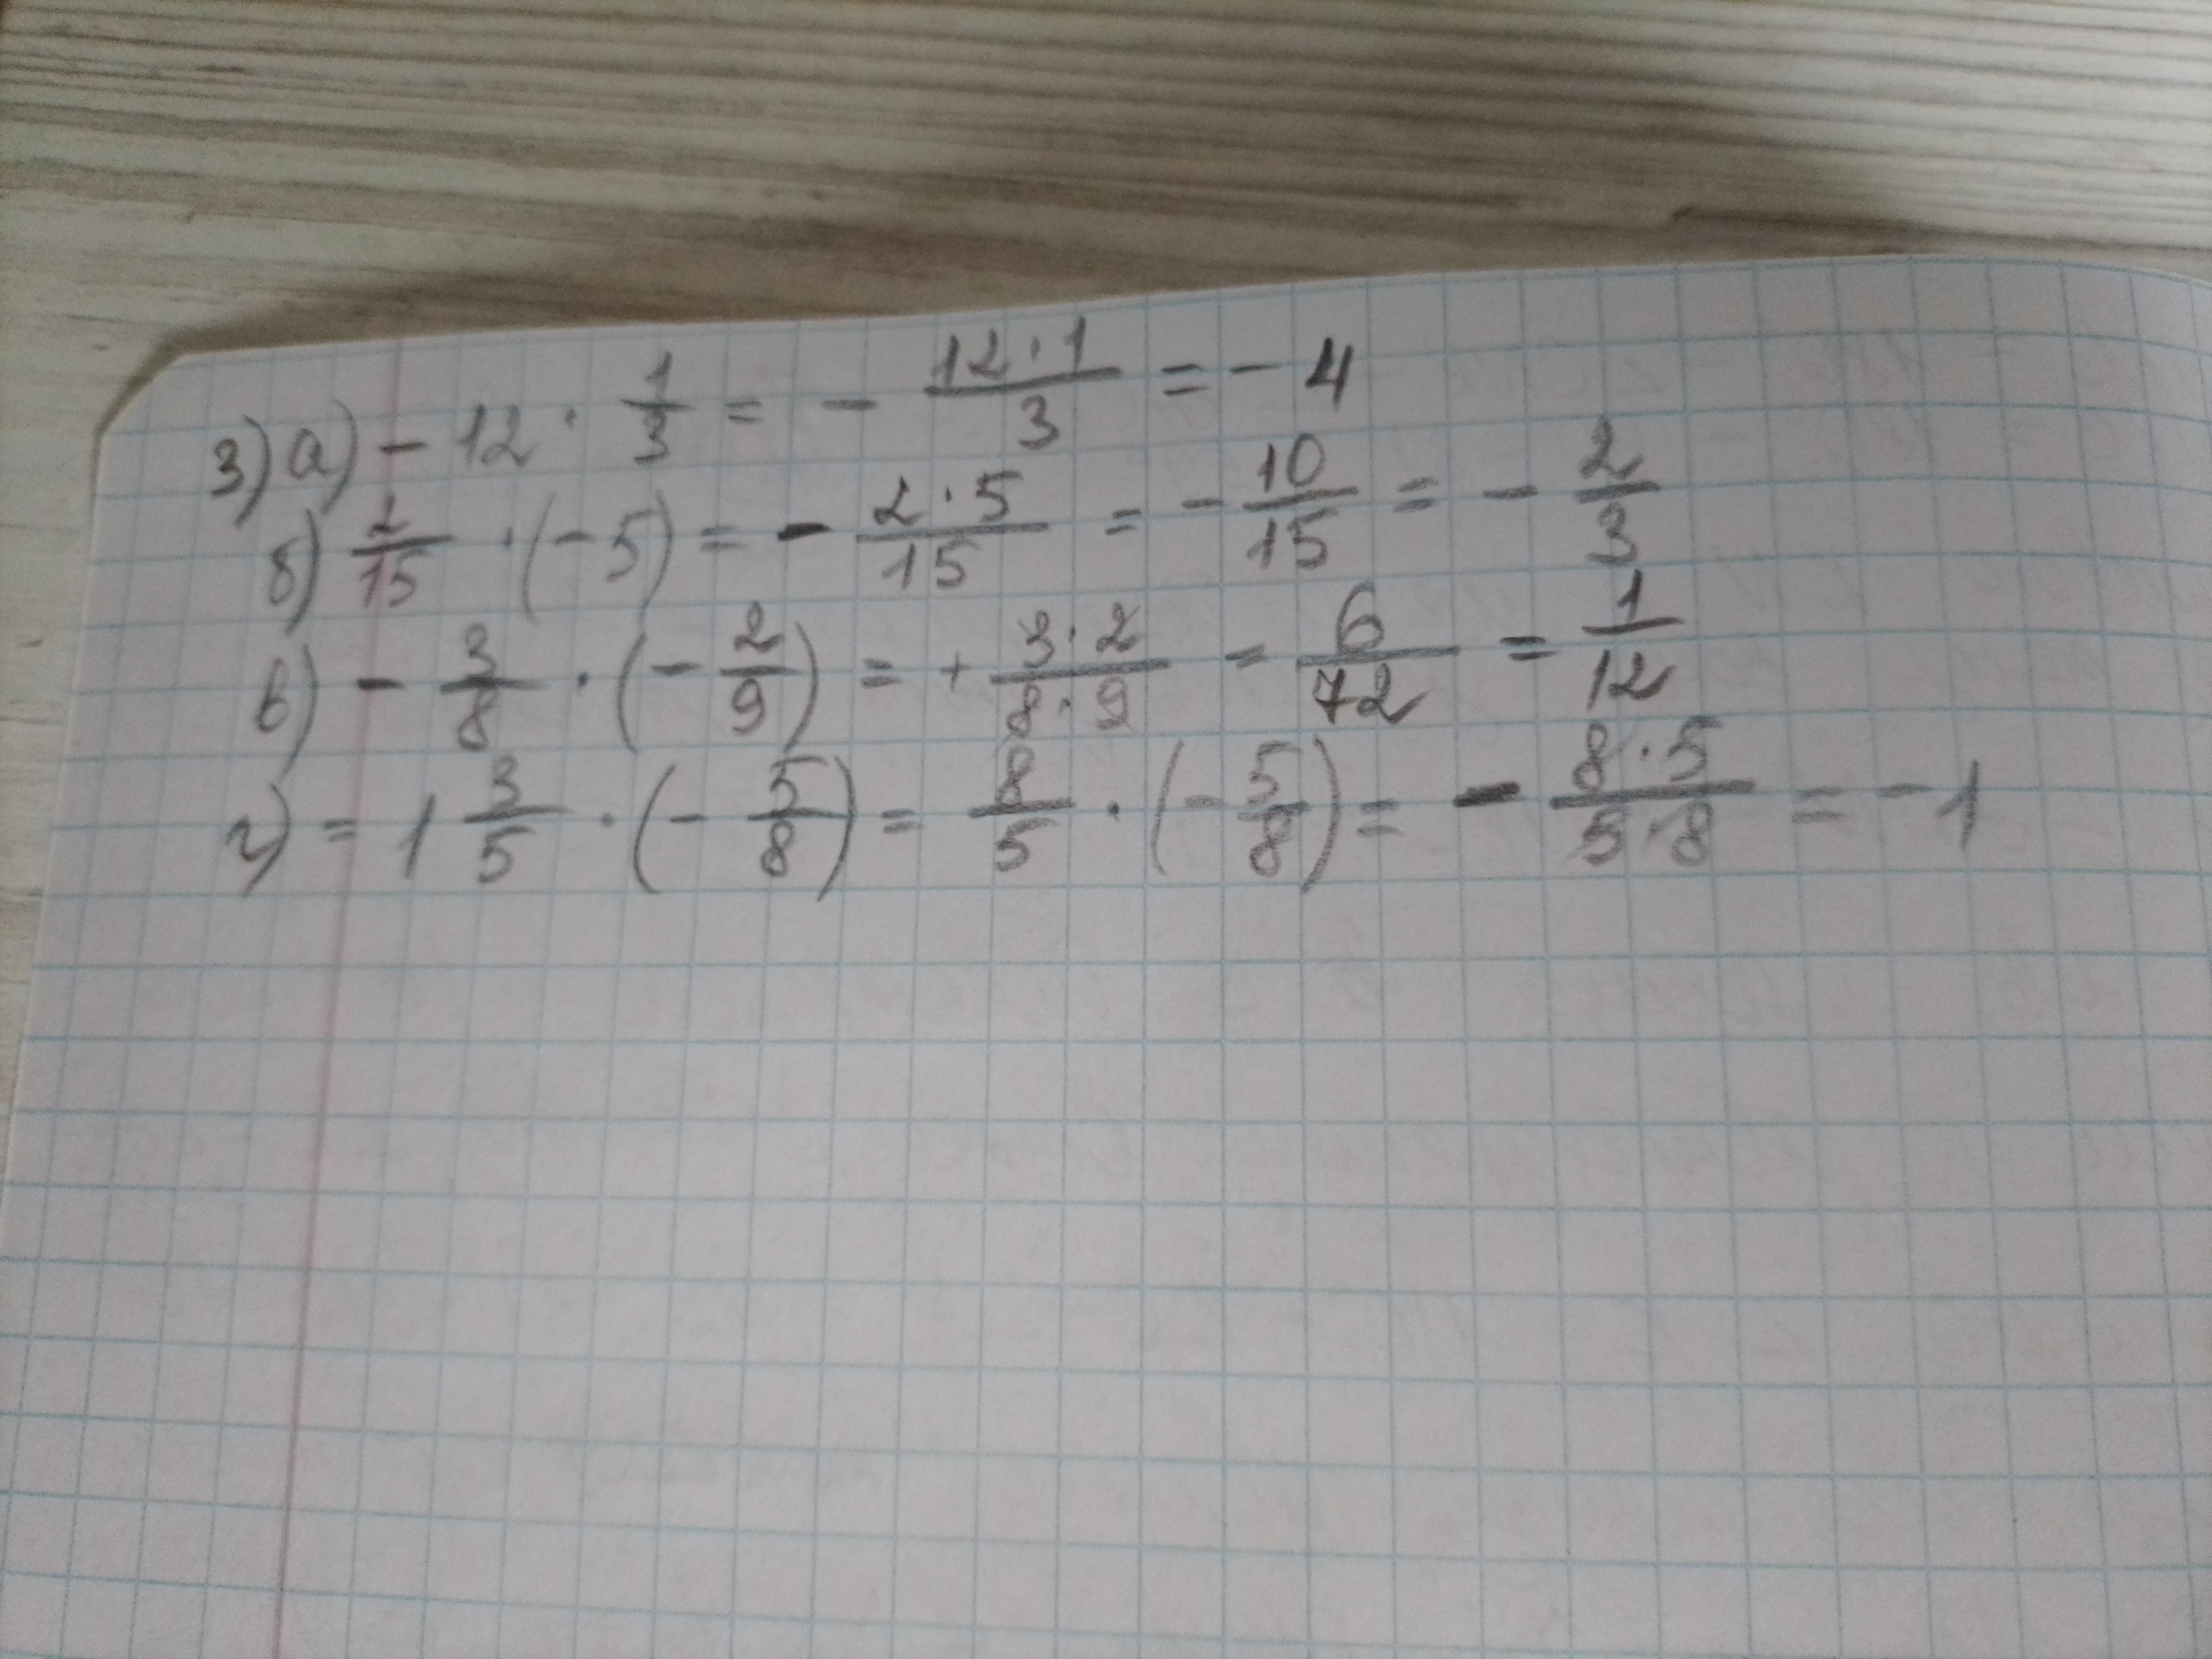 3) а) - 12 · 1/3 = - 12·1/3 = - 4
б) 2/15 · (- 5) = - 2·5/15 = - 10/15 = - 2/3
в) - 3/8 · (- 2/9) = + 3·2/8·9 = 6/72 = 1/12
г) = 1 3/5 · (- 5/8) = 8/5 · (- 5/8) = - 8·5/5·8 = - 1